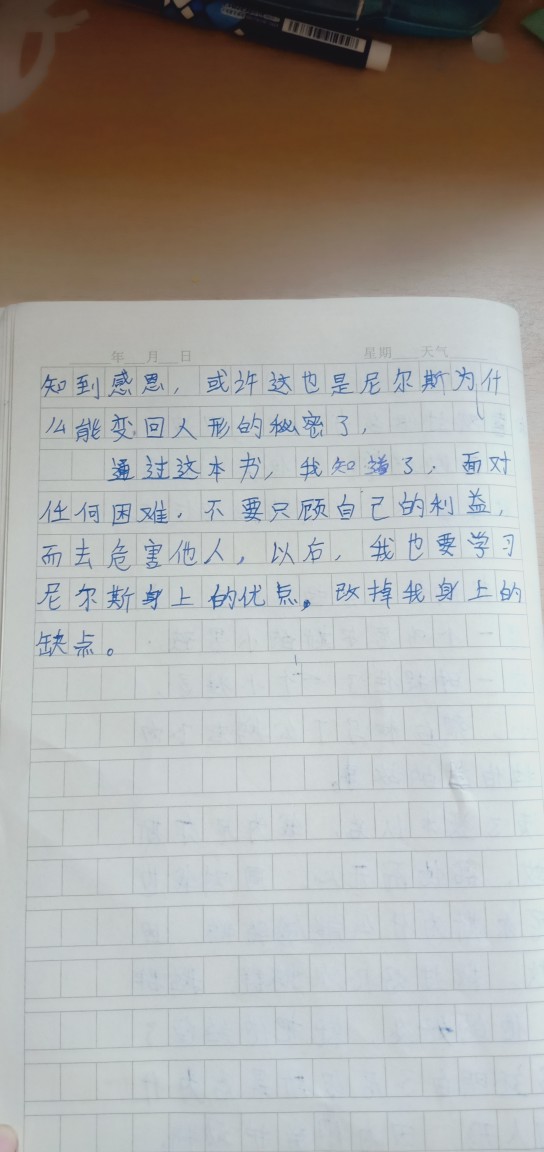 年 月 日 星期 天气
知到感恩，或许这也是尼尔斯为什
么能变回人形的秘密了，
通过这本书，我知道了，面对
任何困难，不要只顾自己的利益，
而去危害他人，以后，我也要学习
尼尔斯身上的优点。改掉我身上的
缺点。